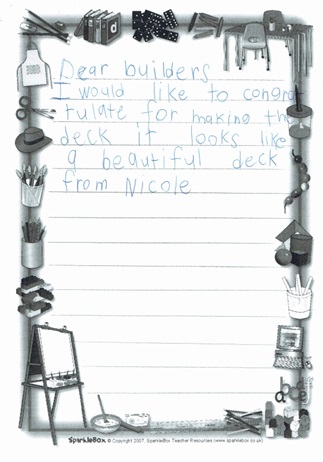 Dear builders
I would like to congra
tulate for making the
deck it looks like
a beautiful deck
from Nicole
SparkleBox © Copyright 2007, SparkleBox Teacher Resources (www.sparklebox.co.uk)